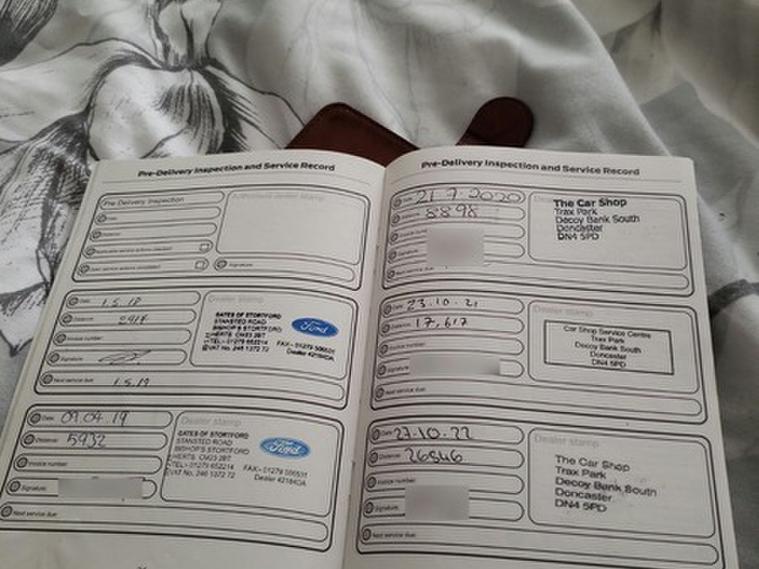 Pre-Delivery Inspection and Service Record
Pre Delivery Inspection
Authorised dealer stamp
Date:
Distance:
Signature:
Date: 1.5.18
Distance:
Invoice number:
Signature:
Next service due: 1.5.19
Dealer stamp
GATES OF STORTFORD
STANSTED ROAD
BISHOP'S STORTFORD
HERTS. CM23 2BT
TEL:- 01279 652214 FAX:- 01279 506531
VAT No. 246 1372 72 Dealer 42184OA
Ford
Date: 09.04.19
Distance: 5932
Invoice number:
Signature:
Next service due:
Dealer stamp
GATES OF STORTFORD
STANSTED ROAD
BISHOP'S STORTFORD
HERTS. CM23 2BT
TEL:- 01279 652214 FAX:- 01279 506531
VAT No. 246 1372 72 Dealer 42184OA
Ford
Pre-Delivery Inspection and Service Record
Date: 21.7.2020
Distance: 8898
Invoice number:
Signature:
Next service due:
The Car Shop
Trax Park
Decoy Bank South
Doncaster
DN4 5PD
Date: 23.10.21
Distance: 17,617
Invoice number:
Signature:
Next service due:
Dealer stamp
Car Shop Service Centre
Trax Park
Decoy Bank South
Doncaster
DN4 5PD
Date: 27.10.22
Distance: 26846
Invoice number:
Signature:
Next service due:
Dealer stamp
The Car Shop
Trax Park
Decoy Bank South
Doncaster
DN4 5PD